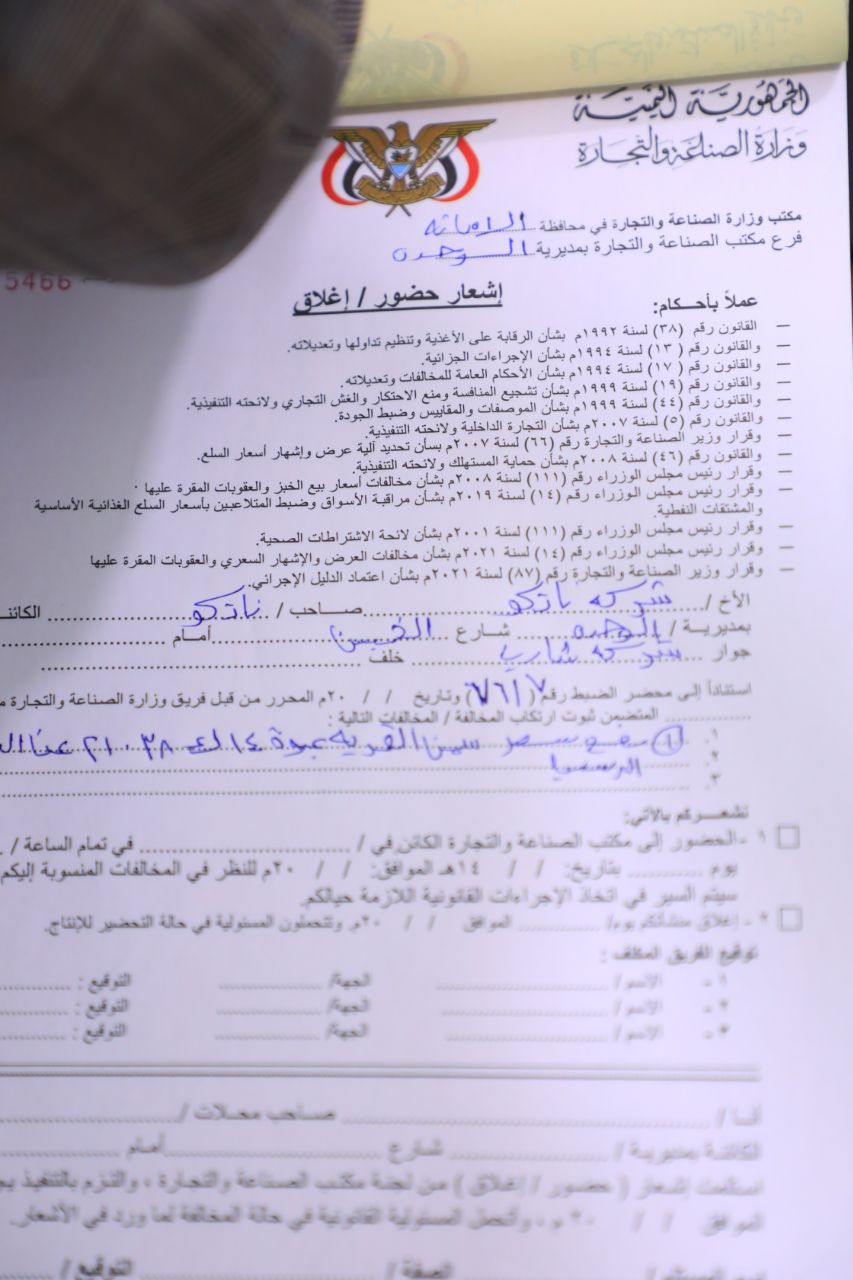 الجمهورية اليمنية
وزارة الصناعة والتجارة
مكتب وزارة الصناعة والتجارة في محافظة الامانه
فرع مكتب الصناعة والتجارة بمديرية الوحده
5466
إشعار حضور / إغلاق
عملاً بأحكام:
– القانون رقم (٣٨) لسنة ١٩٩٢م بشأن الرقابة على الأغذية وتنظيم تداولها وتعديلاته.
– والقانون رقم (١٣) لسنة ١٩٩٤م بشأن الإجراءات الجزائية.
– والقانون رقم (١٧) لسنة ١٩٩٤م بشأن الأحكام العامة للمخالفات وتعديلاته.
– والقانون رقم (١٩) لسنة ١٩٩٩م بشأن تشجيع المنافسة ومنع الاحتكار والغش التجاري ولائحته التنفيذية.
– والقانون رقم (٤٤) لسنة ١٩٩٩م بشأن الموصفات والمقاييس وضبط الجودة.
– والقانون رقم (٥) لسنة ٢٠٠٧م بشأن التجارة الداخلية ولائحته التنفيذية.
– وقرار وزير الصناعة والتجارة رقم (٦٦) لسنة ٢٠٠٧م بسأن تحديد آلية عرض وإشهار أسعار السلع.
– والقانون رقم (٤٦) لسنة ٢٠٠٨م بشأن حماية المستهلك ولائحته التنفيذية.
– وقرار رئيس مجلس الوزراء رقم (١١١) لسنة ٢٠٠٨م بشأن مخالفات أسعار بيع الخبز والعقوبات المقرة عليها .
– وقرار رئيس مجلس الوزراء رقم (١٤) لسنة ٢٠١٩م بشأن مراقبة الأسواق وضبط المتلاعبين بأسعار السلع الغذائية الأساسية
والمشتقات النفطية.
– وقرار رئيس مجلس الوزراء رقم (١١١) لسنة ٢٠٠١م بشأن لائحة الاشتراطات الصحية.
– وقرار رئيس مجلس الوزراء رقم (١٤) لسنة ٢٠٢١م بشأن مخالفات العرض والإشهار السعري والعقوبات المقرة عليها
– وقرار وزير الصناعة والتجارة رقم (٨٧) لسنة ٢٠٢١م بشأن اعتماد الدليل الإجرائي.
الأخ / شركه ناتكو صاحب / ناتكو الكائنـ
بمديرية / الوحده شارع أمام
جوار شركه خلف
استناداً إلى محضر الضبط رقم ( ) وتاريخ / / ٢٠م المحرر من قبل فريق وزارة الصناعة والتجارة
المتضمن ثبوت ارتكاب المخالفة / المخالفات التالية :
١. سعر سمن القريه عبوة
٢. الرسميا
٣.
نشعركم بالآتي:
١ - الحضور إلى مكتب الصناعة والتجارة الكائن في / في تمام الساعة /
يوم بتاريخ: / / ١٤هـ الموافق: / / ٢٠م للنظر في المخالفات المنسوبة إليكم
سيتم السير في اتخاذ الإجراءات القانونية اللازمة حيالكم.
٢ - إغلاق منشأتكم يوم/ الموافق / / ٢٠م. وتتحملون المسئولية في حالة التحضير للإنتاج.
توقيع الفريق المكلف :
١ - الاسم / الجهة/ التوقيع :
٢ - الاسم / الجهة/ التوقيع :
٣ - الاسم / الجهة/ التوقيع :
أنا / صاحب محلات /
الكائنة بمديرية / شارع أمام
استلمت إشعار ( حضور / إغلاق ) من لجنة مكتب الصناعة والتجارة ، والتزم بالتنفيذ
الموافق / / ٢٠م ، وأتحمل المسئولية القانونية في حالة المخالفة لما ورد في الأشعار.
الصفة / التوقيع /